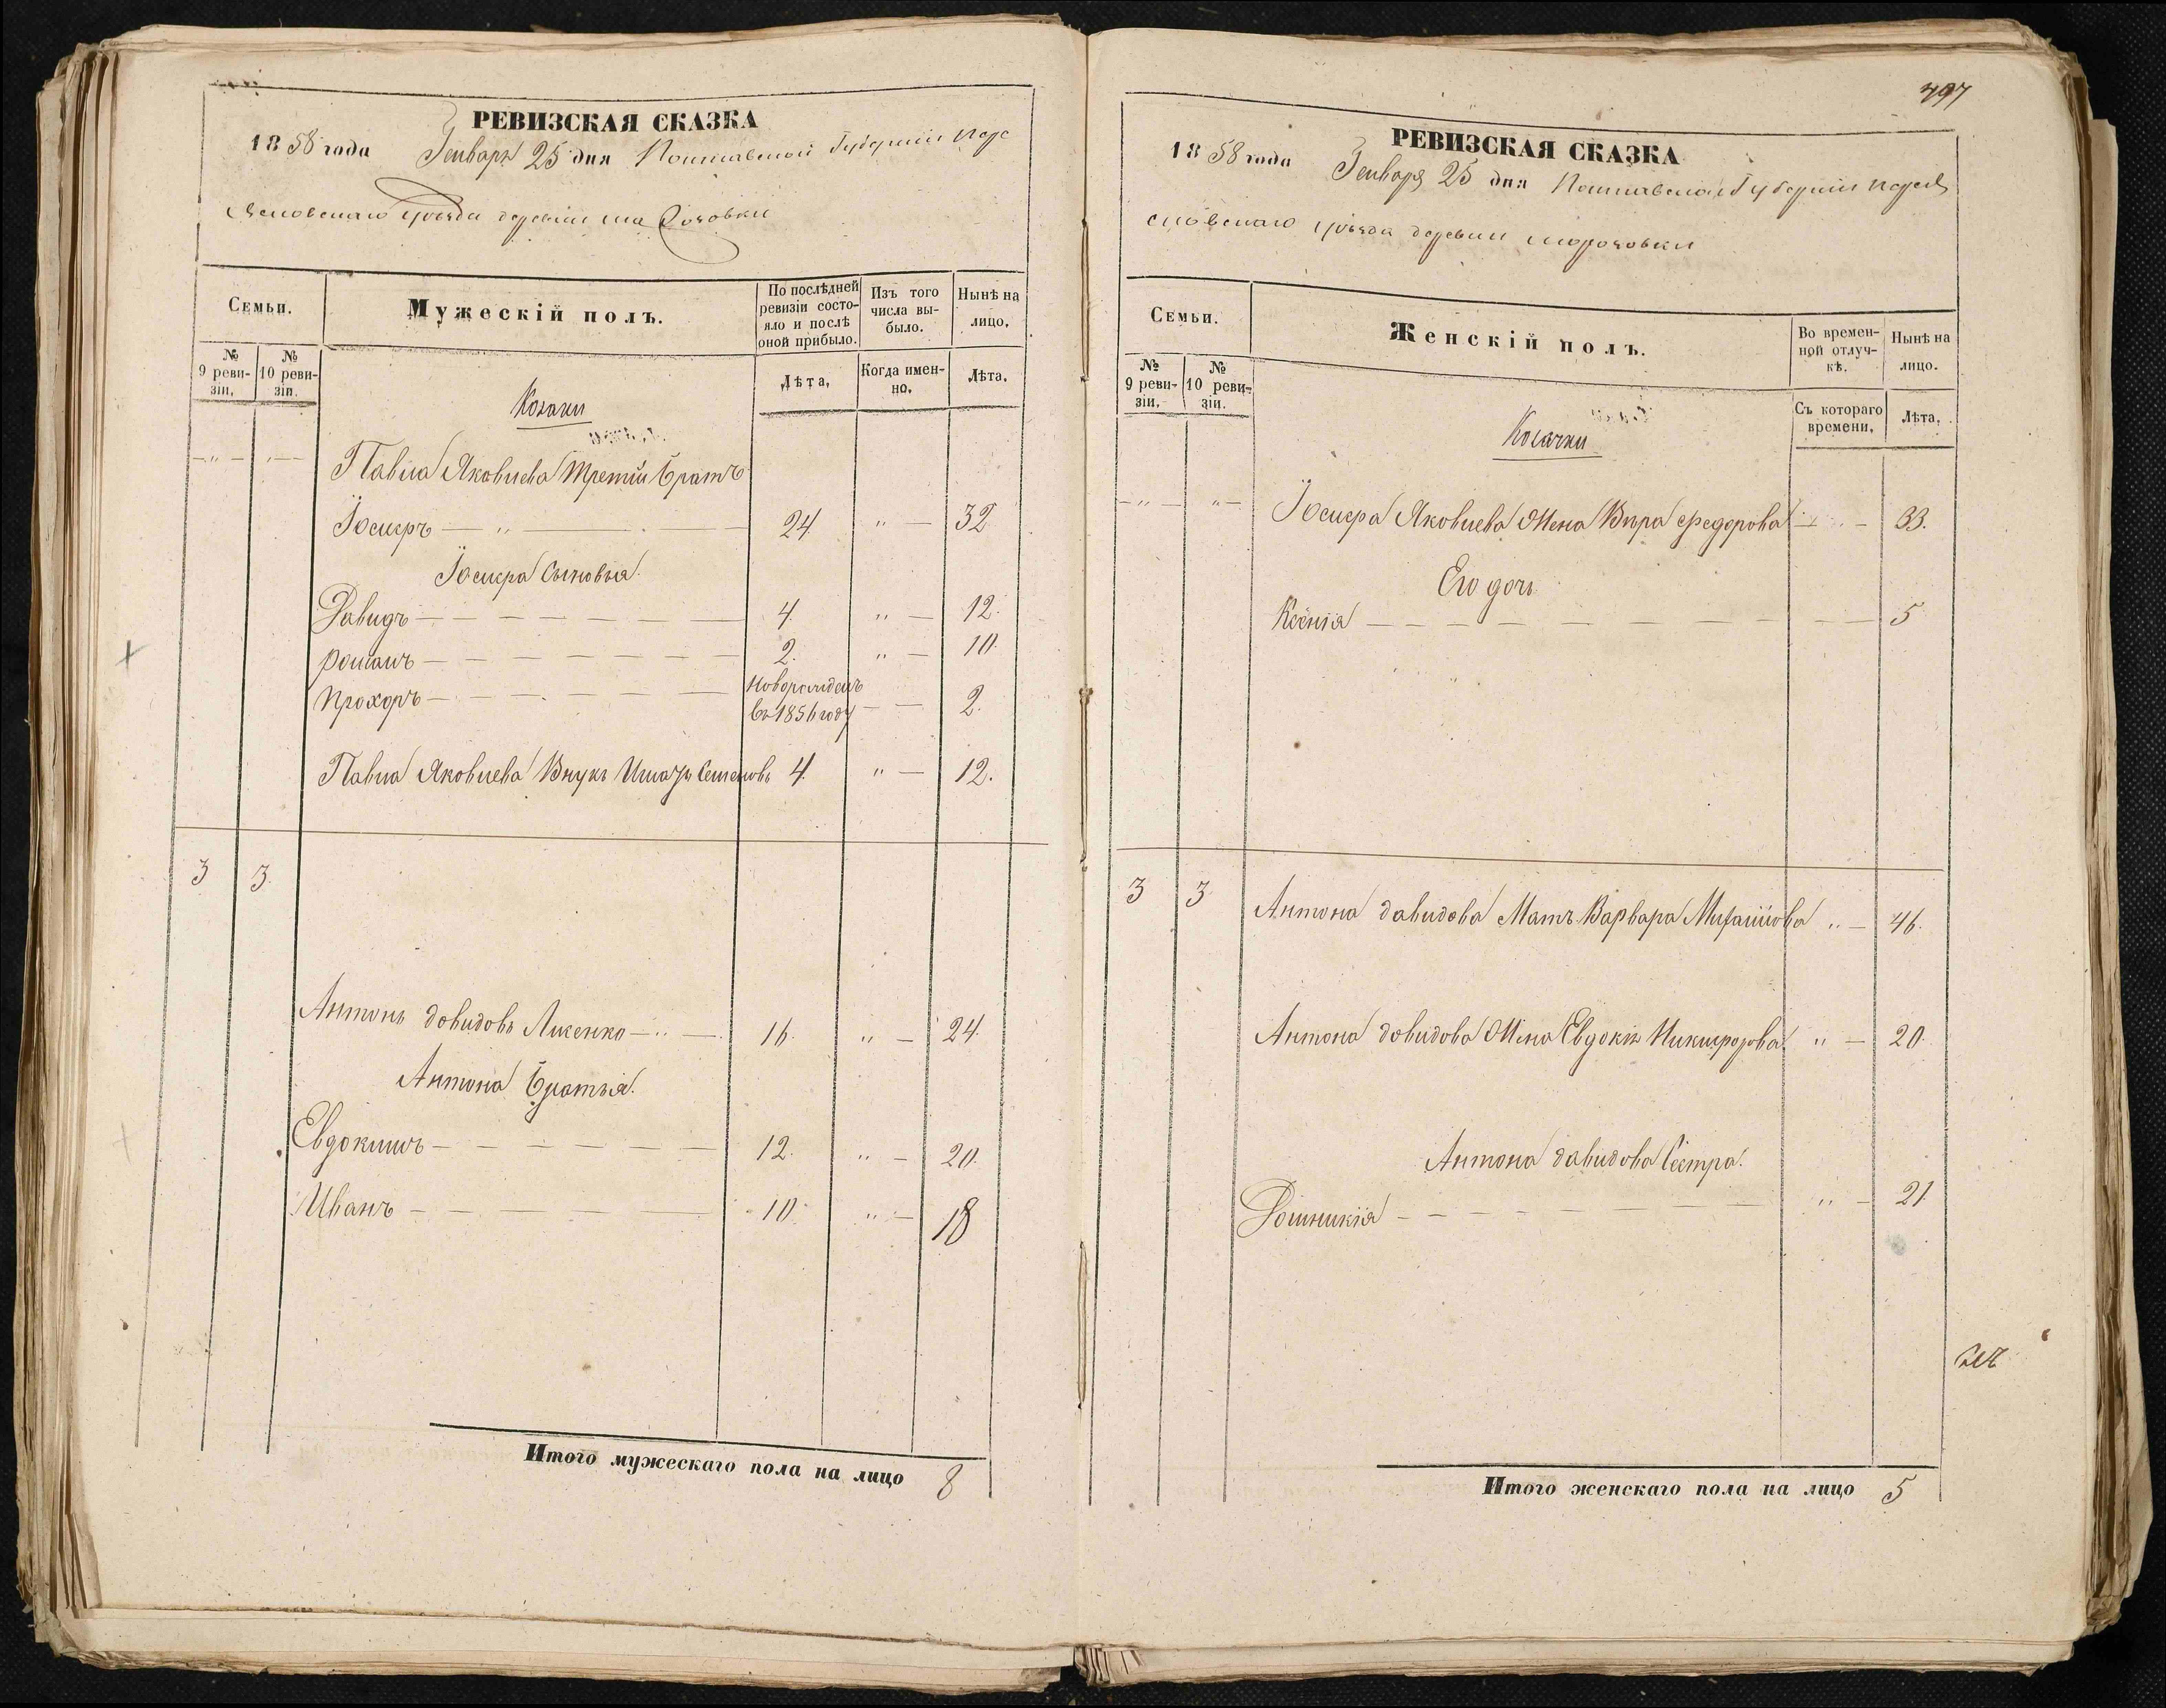 РЕВИЗСКАЯ СКАЗКА
1858 года Генваря 25 дня Полтавской Губернии Пере
яславскаго уѣзда деревни
Семьи.
Мужескій полъ.
По послѣдней ревизіи состояло и послѣ оной прибыло.
Изъ того числа выбыло.
Нынѣ на лицо.
№ 9 ревизіи.
№ 10 ревизіи.
Лѣта.
Когда именно.
Лѣта.
Козаки
Павла Яковлева Третий братъ
Іосифъ — 24. " — 32
Іосифа Сыновья.
Давидъ — 4. " — 12.
Романъ — 2. " — 10.
Прохоръ — Новорожденъ
въ 1856 году — 2.
Павла Яковлева Внукъ Семеновъ 4. " — 12.
3 3.
Антонъ Довидовъ Лисенко — " — 16. " — 24.
Антона братья.
Евдокимъ — 12. " — 20.
Иванъ — 10. " — 18
Итого мужескаго пола на лицо 8
797
РЕВИЗСКАЯ СКАЗКА
1858 года Генваря 25 дня Полтавской Губернии Перея
славскаго уѣзда деревни
Семьи.
Женскій полъ.
Во временной отлучкѣ.
Нынѣ на лицо.
№ 9 ревизіи.
№ 10 ревизіи.
Съ котораго времени.
Лѣта.
Козачки
Іосифа Яковлева Жена Вѣра Федорова — " — 33.
Его дочь
Ксенія — 5
3 3. Антона Давидова Мать Варвара Михайлова " — 46.
Антона Довидова Жена Евдокія Никифорова " — 20.
Антона Давидова Сестра.
Домникія — " — 21
Итого женскаго пола на лицо 5